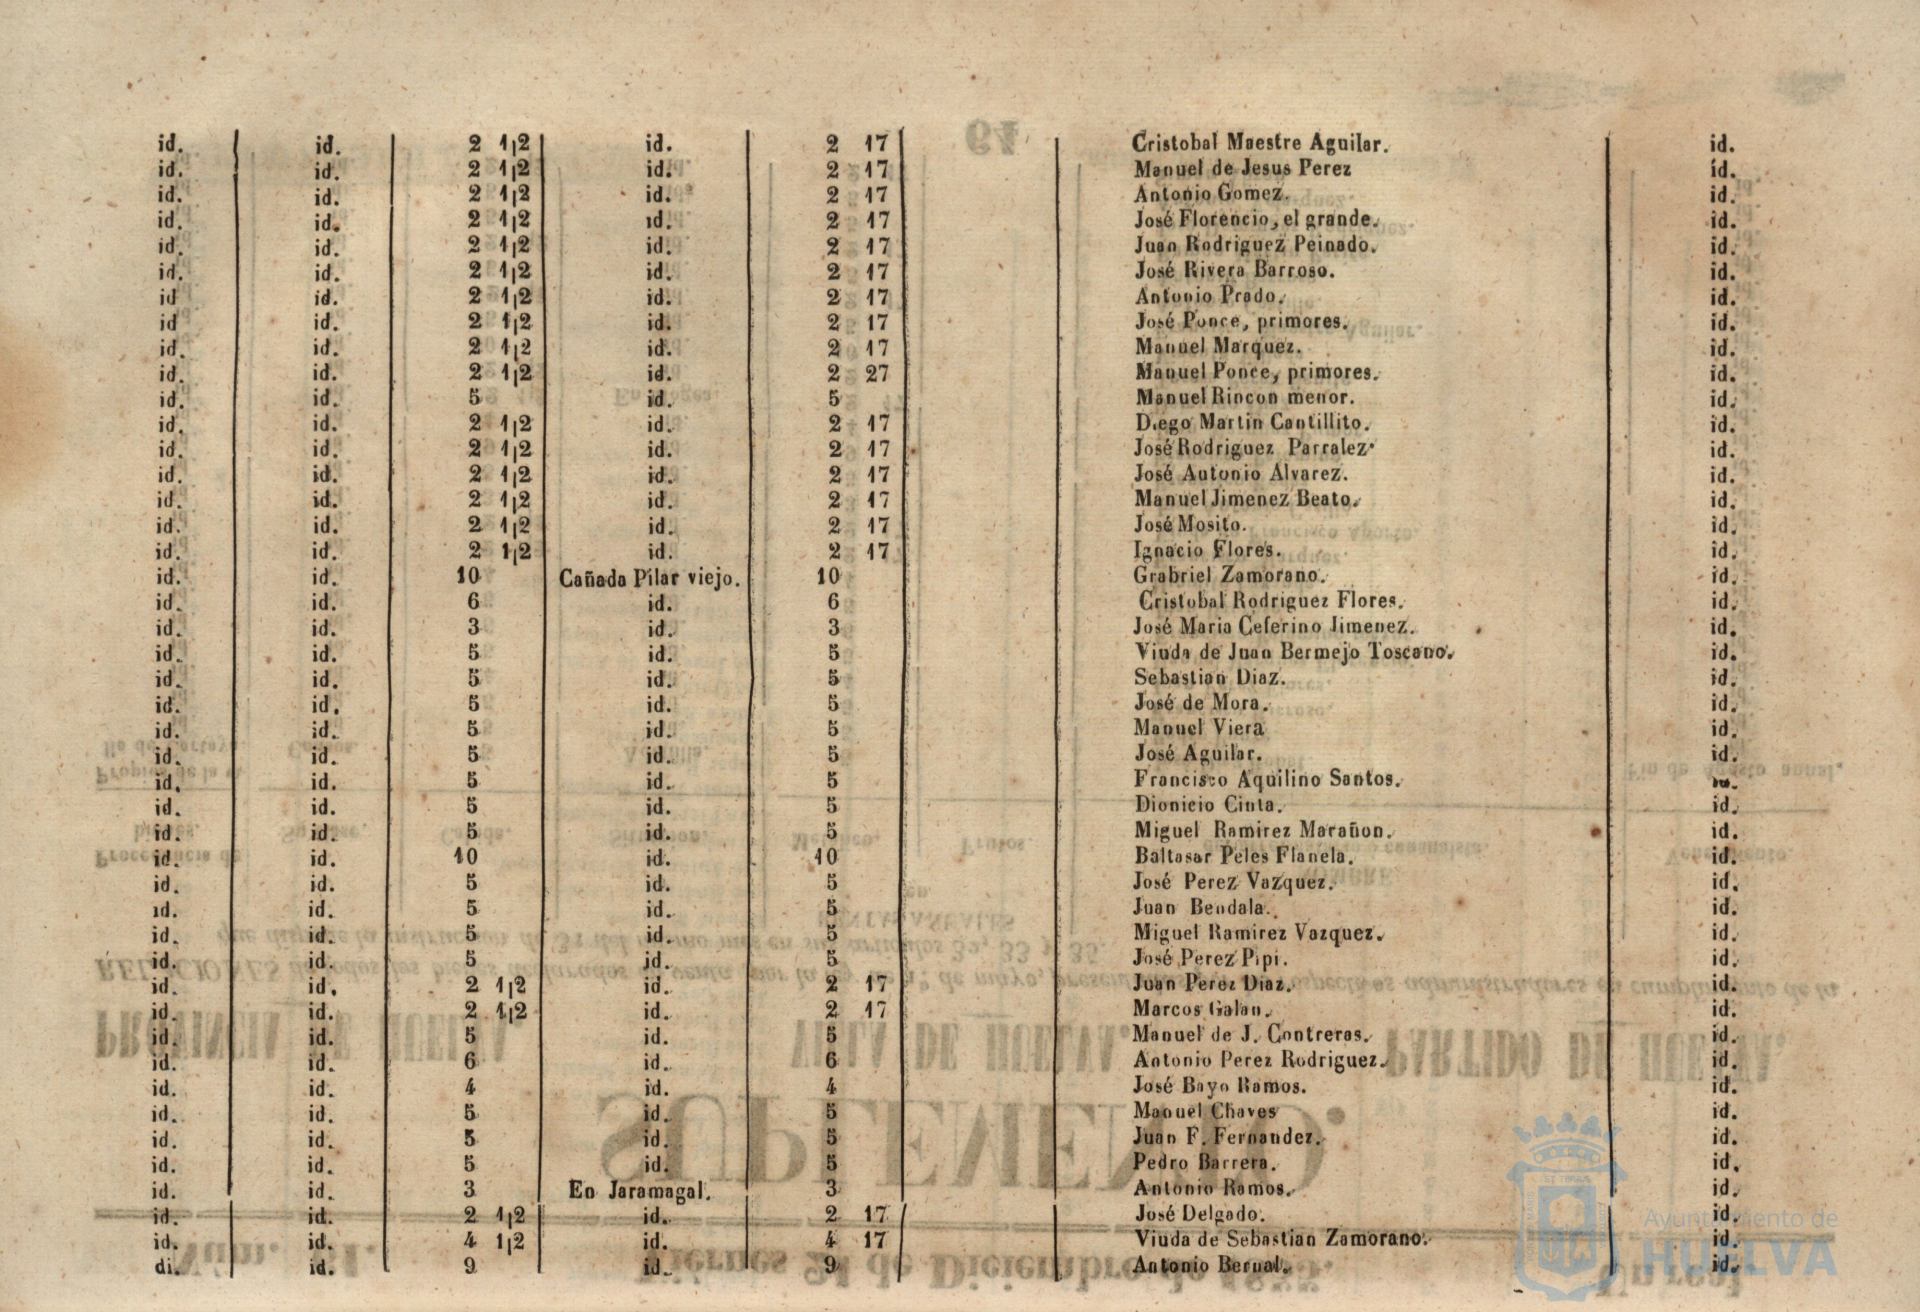 id. id. 2 1|2 id. 2 17 Cristobal Maestre Aguilar. id.
id. id. 2 1|2 id. 2 17 Manuel de Jesus Perez id.
id. id. 2 1|2 id. 2 17 Antonio Gomez. id.
id. id. 2 1|2 id. 2 17 José Florencio, el grande. id.
id. id. 2 1|2 id. 2 17 Juan Rodriguez Peinado. id.
id. id. 2 1|2 id. 2 17 José Rivera Barroso. id.
id id. 2 1|2 id. 2 17 Antonio Prado. id.
id id. 2 1|2 id. 2 17 José Ponce, primores. id.
id. id. 2 1|2 id. 2 17 Manuel Marquez. id.
id. id. 2 1|2 id. 2 27 Manuel Ponce, primores. id.
id. id. 5 id. 5 Manuel Rincon menor. id.
id. id. 2 1|2 id. 2 17 Diego Martin Cantillito. id.
id. id. 2 1|2 id. 2 17 José Rodriguez Parralez. id.
id. id. 2 1|2 id. 2 17 José Antonio Alvarez. id.
id. id. 2 1|2 id. 2 17 Manuel Jimenez Beato. id.
id. id. 2 1|2 id. 2 17 José Mosito. id.
id. id. 2 1|2 id. 2 17 Ignacio Flores. id.
id. id. 10 Cañada Pilar viejo. 10 Grabriel Zamorano. id.
id. id. 6 id. 6 Cristobal Rodriguez Flores. id.
id. id. 3 id. 3 José Maria Ceferino Jimenez. id.
id. id. 5 id. 5 Viuda de Juan Bermejo Toscano. id.
id. id. 5 id. 5 Sebastian Diaz. id.
id. id. 5 id. 5 José de Mora. id.
id. id. 5 id. 5 Manuel Viera id.
id. id. 5 id. 5 José Aguilar. id.
id. id. 5 id. 5 Francisco Aquilino Santos.
id. id. 5 id. 5 Dionicio Cinta. id.
id. id. 5 id. 5 Miguel Ramirez Marañon. id.
id. id. 10 id. 10 Baltasar Peles Flanela. id.
id. id. 5 id. 5 José Perez Vazquez. id.
id. id. 5 id. 5 Juan Bendala. id.
id. id. 5 id. 5 Miguel Ramirez Vazquez. id.
id. id. 5 id. 5 José Perez Pipi. id.
id. id. 2 1|2 id. 2 17 Juan Perez Diaz. id.
id. id. 2 1|2 id. 2 17 Marcos Galan. id.
id. id. 5 id. 5 Manuel de J. Contreras. id.
id. id. 6 id. 6 Antonio Perez Rodriguez. id.
id. id. 4 id. 4 José Bayo Ramos. id.
id. id. 5 id. 5 Manuel Chaves id.
id. id. 5 id. 5 Juan F. Fernandez. id.
id. id. 5 id. 5 Pedro Barrera. id.
id. id. 3 En Jaramagal. 3 Antonio Ramos. id.
id. id. 2 1|2 id. 2 17 José Delgado. id.
id. id. 4 1|2 id. 4 17 Viuda de Sebastian Zamorano. id.
di. id. 9 id. 9 Antonio Bernal. id.
Ayuntamiento de
HUELVA